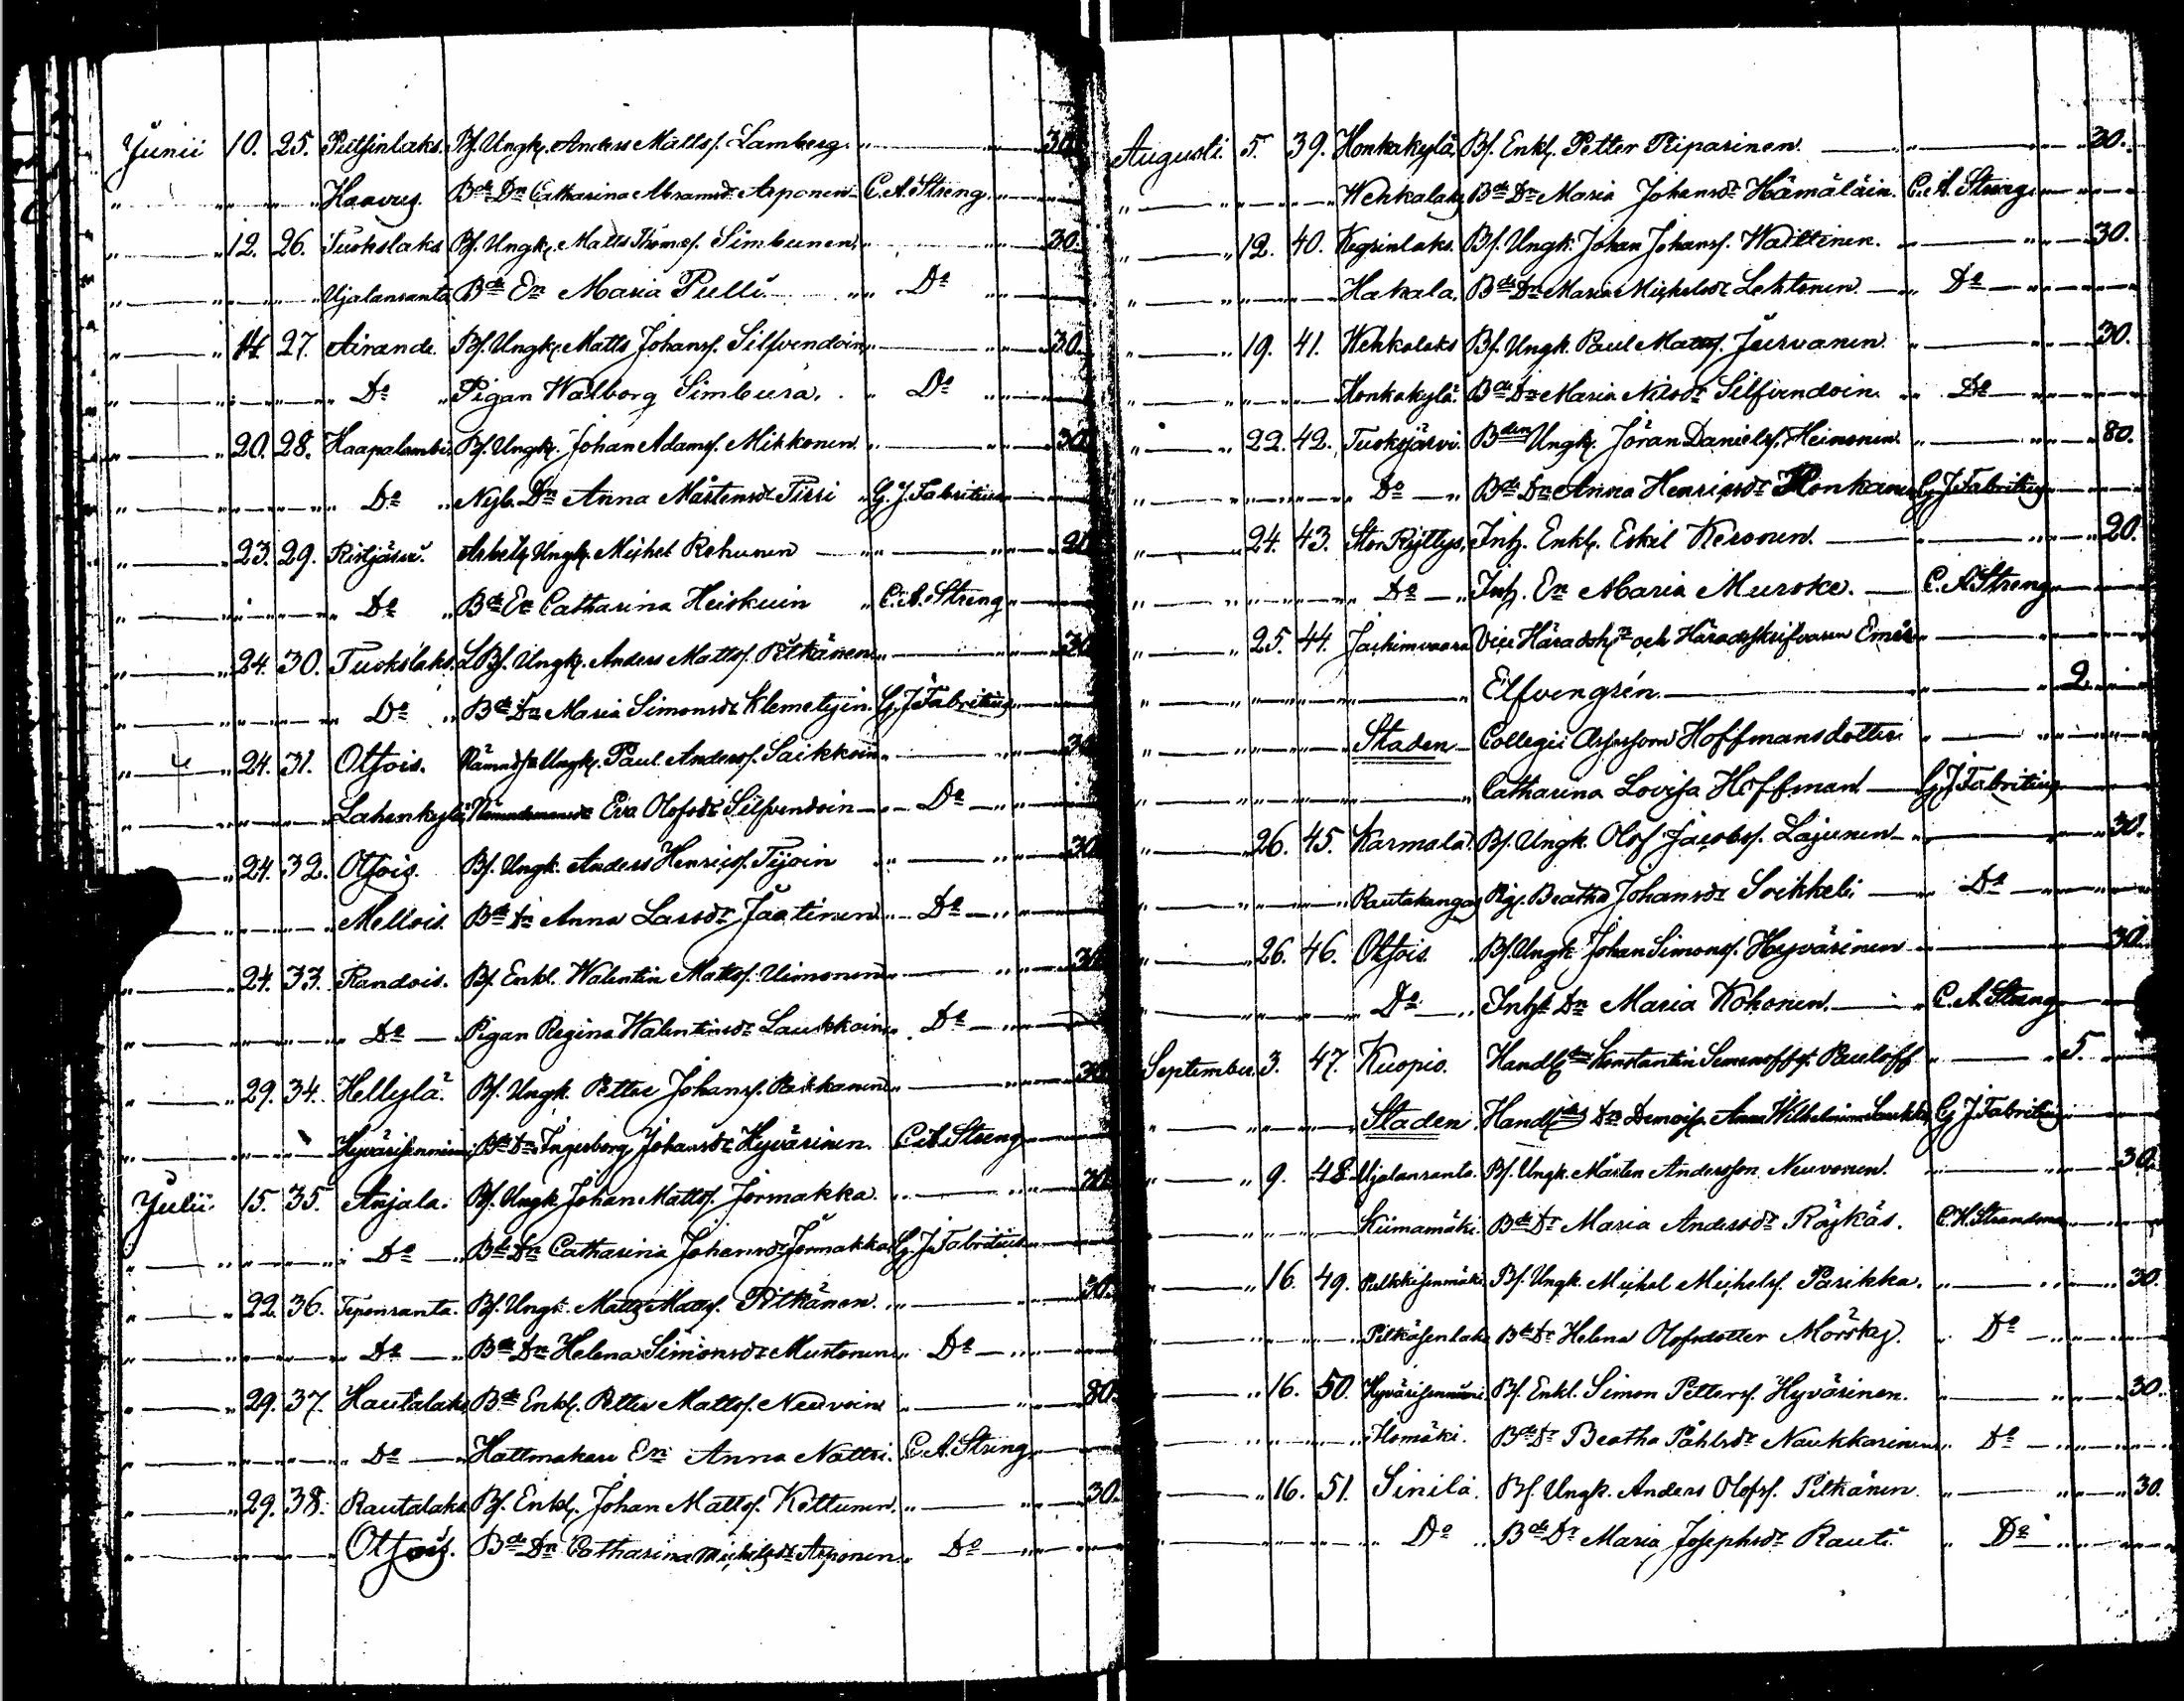 Junii 10. 25. Pitsinlaks. Bs. Ungk. Anders Matts. Lamberg. 30.
Haavus. Bde Dn Catharina Abramsdr Asponen C. A. Streng
12. 26. Tuokslaks Bs. Ungk. Matts Thomæs. Simbunen 30.
Ujalanranta Bde En Maria Pulli Do
14. 27. Airando. Bs. Ungk. Matts Johans. Silfvendoin 30.
Do Pigan Walborg Simbura. Do
20. 28. Haapalambi. Bs. Ungk. Johan Adams. Mikkonen. 30.
Do Nyb. Dn Anna Mårtensdr Tirri G. J. Fabritius
23. 29. Ristjärvi. Arbetsk. Ungk. Michel Rehunen 20.
Do Bde En Catharina Heiskuin C. A. Streng
24. 30. Tuokslaks. LBs. Ungk. Anders Matts. Pitkänen 30.
Do Bde Dn Maria Simonsdr Klemetyin. G. J. Fabritius
24. 31. Otsois. Nämnds. Ungk. Paul Anders. Saikkoin 30.
Lahenkylä Nämndemansdr Eva Olofsdr Silfvendoin Do
24. 32. Otsois. Bs. Ungk. Anders Henrics. Tijoin 30.
Mellois. Bde Dn Anna Larsdr Jäätinen Do
24. 33. Randois. Bs. Enkl. Walentin Matts. Uimonen 30.
Do Pigan Regina Walentinsdr Laukkain Do
29. 34. Hellylä. Bs. Ungk. Petter Johans. Pakkanen 30.
Hyvärisenniemi. Bde Dn Ingerborg Johansdr Hyvärinen. C. A. Streng
Julii 15. 35. Anjala. Bs. Ungk. Johan Matts. Jormakka. 30.
Do Bde Dn Catharina Johansdr Jormakka G. J. Fabritius
22. 36. Teponranta. Bs. Ungk. Matts Matts. Pitkänen. 30.
Do Bde Dn Helena Simonsdr Mustonen Do
29. 37. Hautalaks Bde Enkl. Petter Matts. Neuvoin 80.
Do Hattmakare En Anna Nättri. C. A. Streng
29. 38. Rautalaks Bs. Enkl. Johan Matts. Kettunen. 30.
Otsois. Bde Dn Catharina Michelsdr Asponen Do
Augusti. 5. 39. Honkakylä. Bs. Enkl. Petter Piiparinen. 30.
Wehkalaks Bde Dn Maria Johansdr Hämäläin. C. A. Streng
12. 40. Kegrinlaks. Bs. Ungk. Johan Johans. Waittinen. 30.
Hakala. Bde Dn Maria Michelsdr Lehtonen Do
19. 41. Wehkalaks Bs. Ungk. Paul Matts. Jurvanen 30.
Honkakylä. Bde Dn Maria Nilsdr Silfvendoin Do
22. 42. Tuoksjärvi. Bden Ungk. Jöran Daniels. Heinonen 80.
Do Bde Dn Anna Henricsdr Honkanen G. J. Fabritius
24. 43. Ston Ryttys. Inh. Enkl. Eskil Kesonen. 20.
Do Inh. En Maria Murske. C. A. Streng
25. 44. Jachimvaara Vice Häradsh. och Häradsskrifvaren Emil
Elfvengrén 2.
Staden Collegii Assessorn Hoffmansdotter
Catharina Lovisa Hoffman G. J. Fabritius
26. 45. Karmala. Bs. Ungk. Olof Jacobs. Lajunen 30.
Rautakangas Pig. Beatha Johansdr Soikkeli Do
26. 46. Otsois. Bs. Ungk. Johan Simons. Hyvärinen 30.
Do Inh. Dn Maria Kohonen. C. A. Streng
September. 3. 47. Kuopio. Handl. Konstantin Semenoffs. Pauloff 5.
Staden Handl. Dn Demois. Anna Wilhelmina G. J. Fabritius
9. 48. Ujalanranta. Bs. Ungk. Mårten Andersson Neuvonen. 30.
Kiimamäki. Bde Dr Maria Andersdr Räykäs.
16. 49. Bs. Ungk. Michel Michels. Parikka. 30.
Pitkäsenlaks Bde Dr Helena Olofsdotter Mörsky. Do
16. 50. Hyvärisenniemi. Bs. Enkl. Simon Petters. Hyvärinen. 30.
Ilomäki. Bde Dr Beatha Påhlsdr Naukkarinen Do
16. 51. Sinilä. Bs. Ungk. Anders Olofs. Pitkänen. 30.
Do Bde Dr Maria Josephsdr Rauti Do